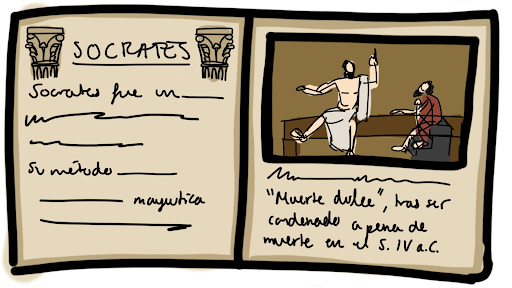 SOCRATES
Socrates fue un
Su método
mayeutica
"Muerte dulce", tras ser
condenado a pena de
muerte en el S. IV a.C.